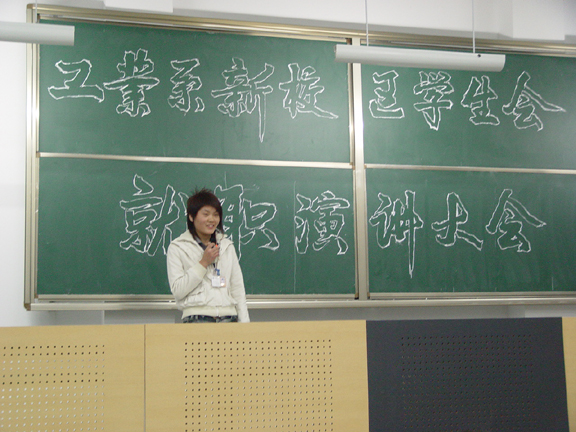 工业系新校区学生会
就职演讲大会